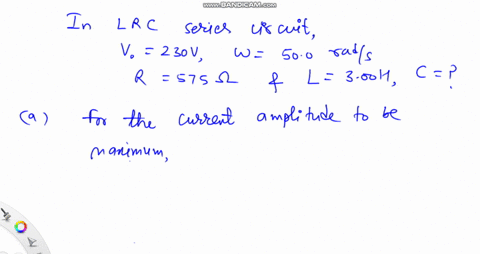 WWW.BANDICAM.COM
In LRC series circuit,
V₀ = 230V, ω = 50.0 rad/s
R = 575 Ω & L = 3.00H, C = ?
(a) for the current amplitude to be
maximum,